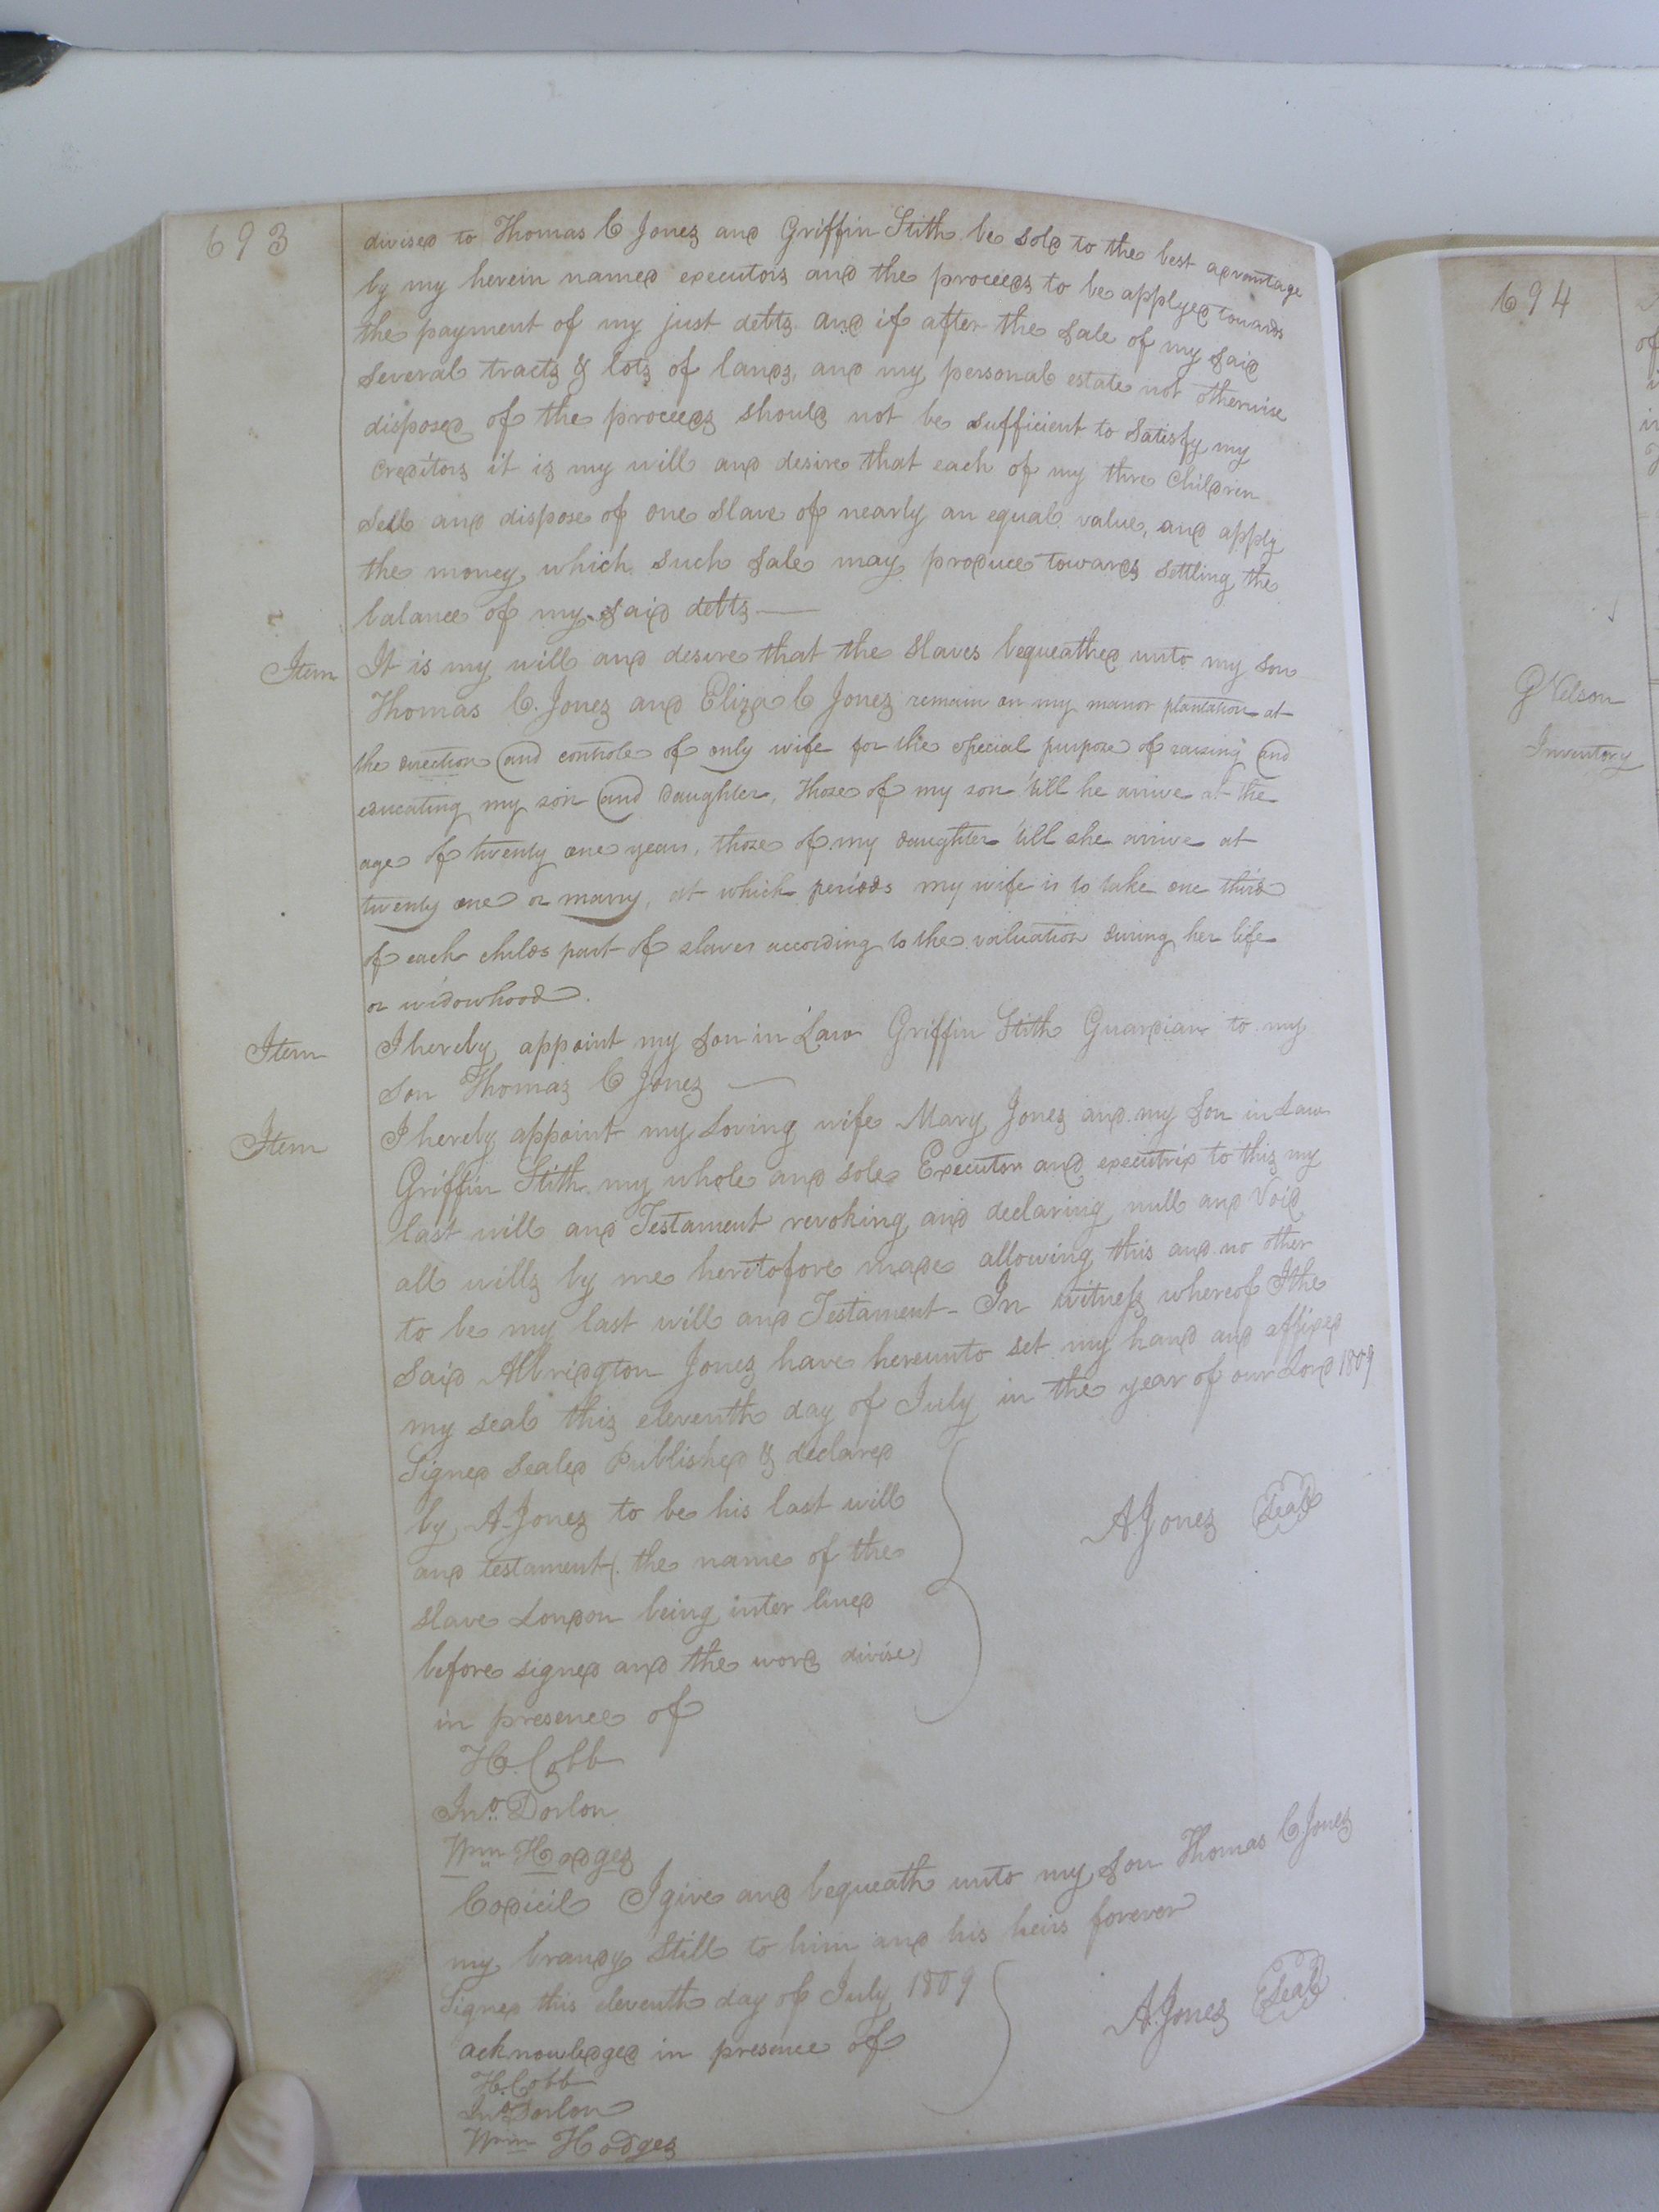 693
divised to Thomas C Jones and Griffin Stith be sold to the best advantage
by my herein named executors and the proceeds to be applyed towards
the payment of my just debts and if after the sale of my said
several tracts & lots of lands, and my personal estate not otherwise
disposed of the proceeds should not be sufficient to satisfy my
Creditors it is my will and desire that each of my three Children
sell and dispose of one slave of nearly an equal value, and apply
the money which such sale may produce towards settling the
balance of my said debts
Item It is my will and desire that the slaves bequeathed unto my son
Thomas C. Jones and Eliza C Jones remain on my manor plantation at
the direction and controle of only wife for the especial purpose of raising and
educating my son and daughter, Those of my son 'till he arrive at the
age of twenty one years, those of my daughter 'till she arrive at
twenty one or marry, at which periods my wife is to take one third
of each childs part of slaves according to the valuation during her life
or widowhood.
Item I hereby appoint my son in Law Griffin Stith Guardian to my
son Thomas C Jones
Item I hereby appoint my Loving wife Mary Jones and my son in Law
Griffin Stith my whole and sole Executor and executrix to this my
last will and Testament revoking and declaring null and Void
all wills by me heretofore made allowing this and no other
to be my last will and Testament - In witness whereof I the
said Albridgton Jones have hereunto set my hand and affixed
my seal this eleventh day of July in the year of our Lord 1809
Signed Sealed Published & declared
by A. Jones to be his last will
and testament (the name of the
slave London being inter lined
before signed and the word divise)
in presence of
A. Jones Seal
H. Cobb
Jno. Dorlon
Wm Hodges
Codicil I give and bequeath unto my son Thomas C Jones
my brandy Still to him and his heirs forever
Signed this eleventh day of July 1809
acknowledged in presence of
A. Jones Seal
H. Cobb
Jno. Dorlon
Wm Hodges
694
Nelson
Inventory